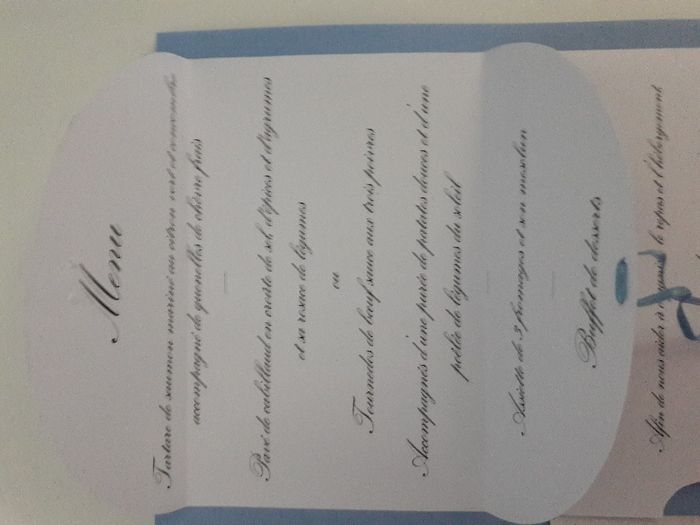 Menu
Tartare de saumon mariné au citron vert et
accompagné de quenelles de chèvre frais
Pavé de cabillaud en croûte de sel, d'épices et d'agrumes
et sa rosace de légumes
ou
Tournedos de bœuf sauce aux trois poivres
Accompagnés d'une purée de patates douces et d'une
poêlée de légumes du soleil
Assiette de 3 fromages et son mesclun
Buffet de desserts
Afin de nous aider à le repas et l'hébergement